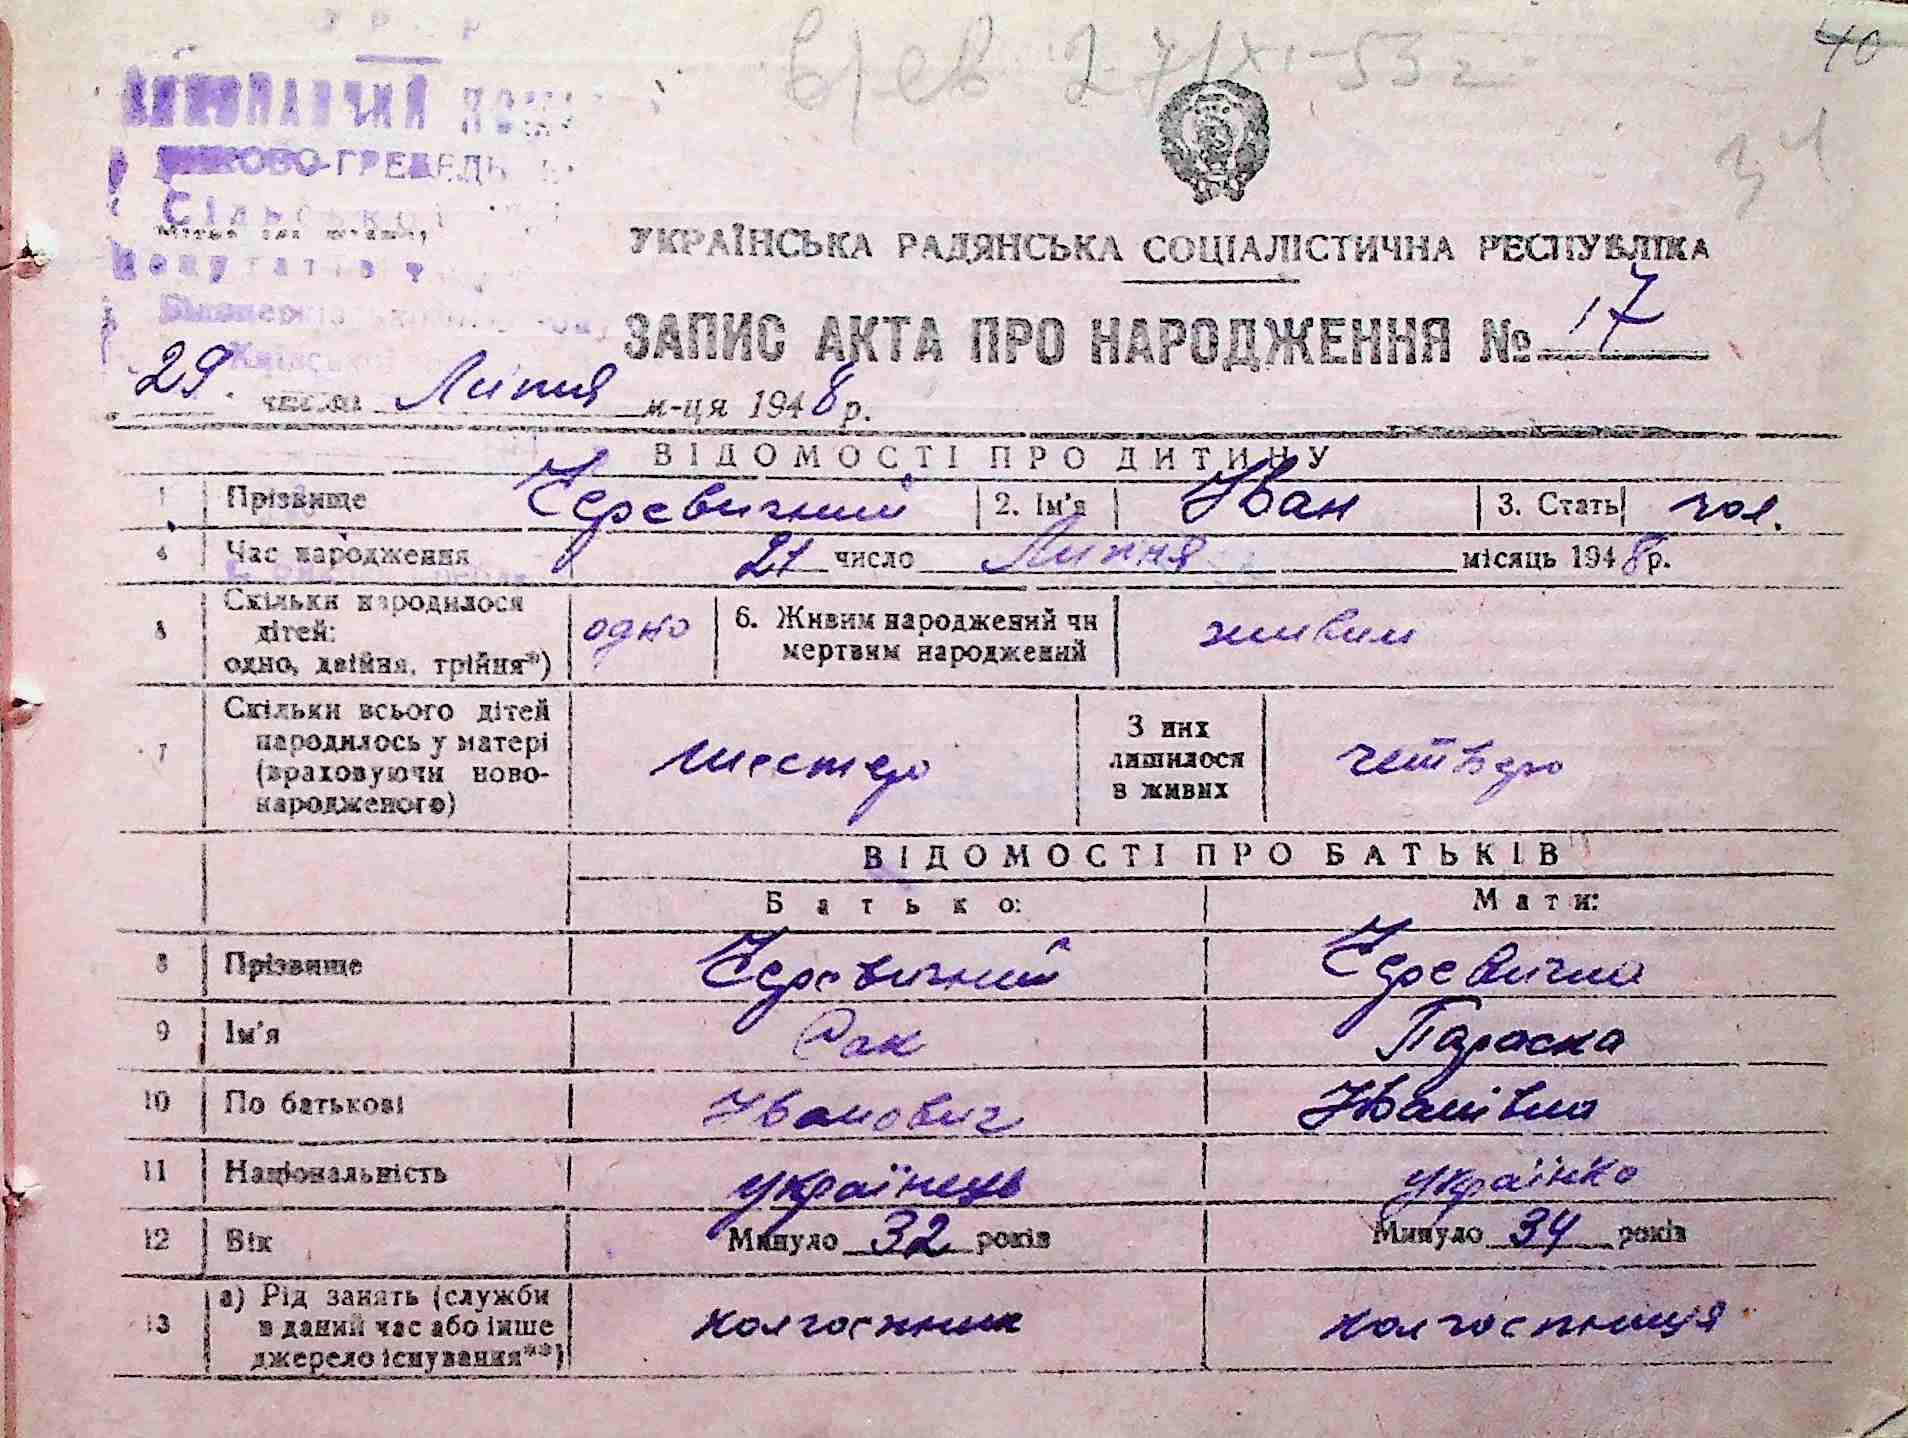 У Р С Р
40
ВИКОНАВЧИЙ
Сільської
Депутатів
УКРАЇНСЬКА РАДЯНСЬКА СОЦІАЛІСТИЧНА РЕСПУБЛІКА
ЗАПИС АКТА ПРО НАРОДЖЕННЯ № 17
29 числа Липня м-ця 1948 р.
ВІДОМОСТІ ПРО ДИТИНУ
1 Прізвище Черевичний 2. Ім'я Іван 3. Стать чол.
4 Час народження 21 число Липня місяць 1948 р.
5 Скільки народилося дітей: одно, двійня, трійня*) одно 6. Живим народжений чи мертвим народжений живим
7 Скільки всього дітей народилось у матері (враховуючи ново-народженого) шестеро З них лишилося в живих четверо
ВІДОМОСТІ ПРО БАТЬКІВ
Батько: Мати:
8 Прізвище Черевичний Черевична
9 Ім'я Сак Параска
10 По батькові Іванович Іванівна
11 Національність українець українка
12 Вік Минуло 32 років Минуло 34 років
13 а) Рід занять (служби в даний час або інше джерело існування**) колгоспник колгоспниця